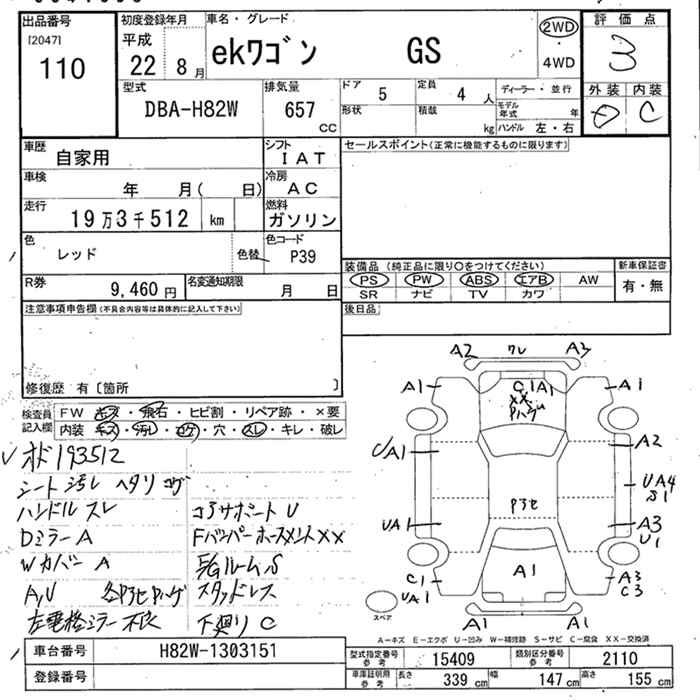 出品番号 初度登録年月 車名・グレード 2WD 評価点
[2047] 平成 ekワゴン GS 4WD 3
110 22 8月
型式 排気量 ドア 5 定員 4人 ディーラー・並行 外装 内装
DBA-H82W 657 cc 形状 積載 kg モデル年式 年 ハンドル 左・右 C
車歴 自家用 シフト IAT セールスポイント(正常に機能するものに限ります)
車検 年 月( 日) 冷房 AC
走行 19万3千512 km 燃料 ガソリン
色 レッド 色替 色コード P39
装備品(純正品に限り○をつけてください) 新車保証書
R券 9,460円 名変通知期限 月 日 PS PW ABS エアB AW 有・無
SR ナビ TV カワ
注意事項申告欄(不具合内容等は具体的に記入して下さい) 後日品
修復歴 有〔箇所 〕
A2 ワレ A3
検査員記入欄 FW キズ・飛石・ヒビ割・リペア跡・×要
内装 キズ・汚レ・コゲ・穴・スレ・キレ・破レ
A1 C1 A1 A1
XX
オド193512
シート汚レ ヘタリ コゲ
ハンドル スレ コアサポート U
Dミラー A Fバンパーホースメント XX
Wカバー A ルーム S
A/V スタッドレス
左電格ミラー不良 下廻り C
A1 A2
UA4
S1
UA1 A3
U1
C1 A1 A3
UA1 C3
スペア A1 A1
A-キズ E-エクボ U-凹み W-補修跡 S-サビ C-腐食 XX-交換済
車台番号 H82W-1303151 型式指定番号 参考 15409 類別区分番号 参考 2110
登録番号 車庫証明用 参考 長さ 339 cm 幅 147 cm 高さ 155 cm